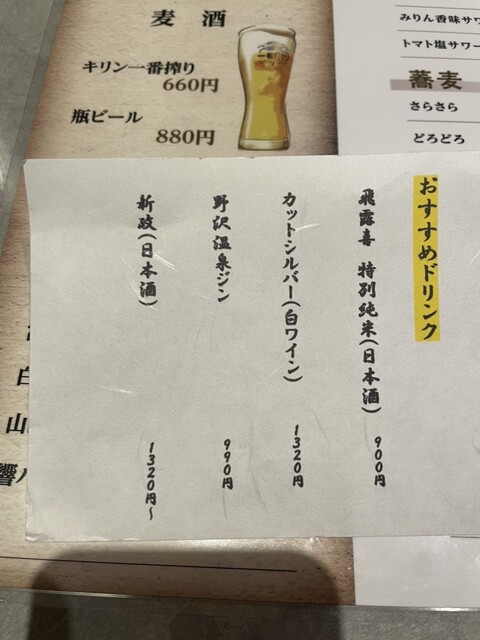 麦酒
キリン一番搾り
660円
瓶ビール
880円
みりん香味サワ
トマト塩サワー
蕎麦
さらさら
どろどろ
おすすめドリンク
飛露喜 特別純米(日本酒) 900円
カットシルバー(白ワイン) 1320円
野沢温泉ジン 990円
新政(日本酒) 1320円~
白
山
響